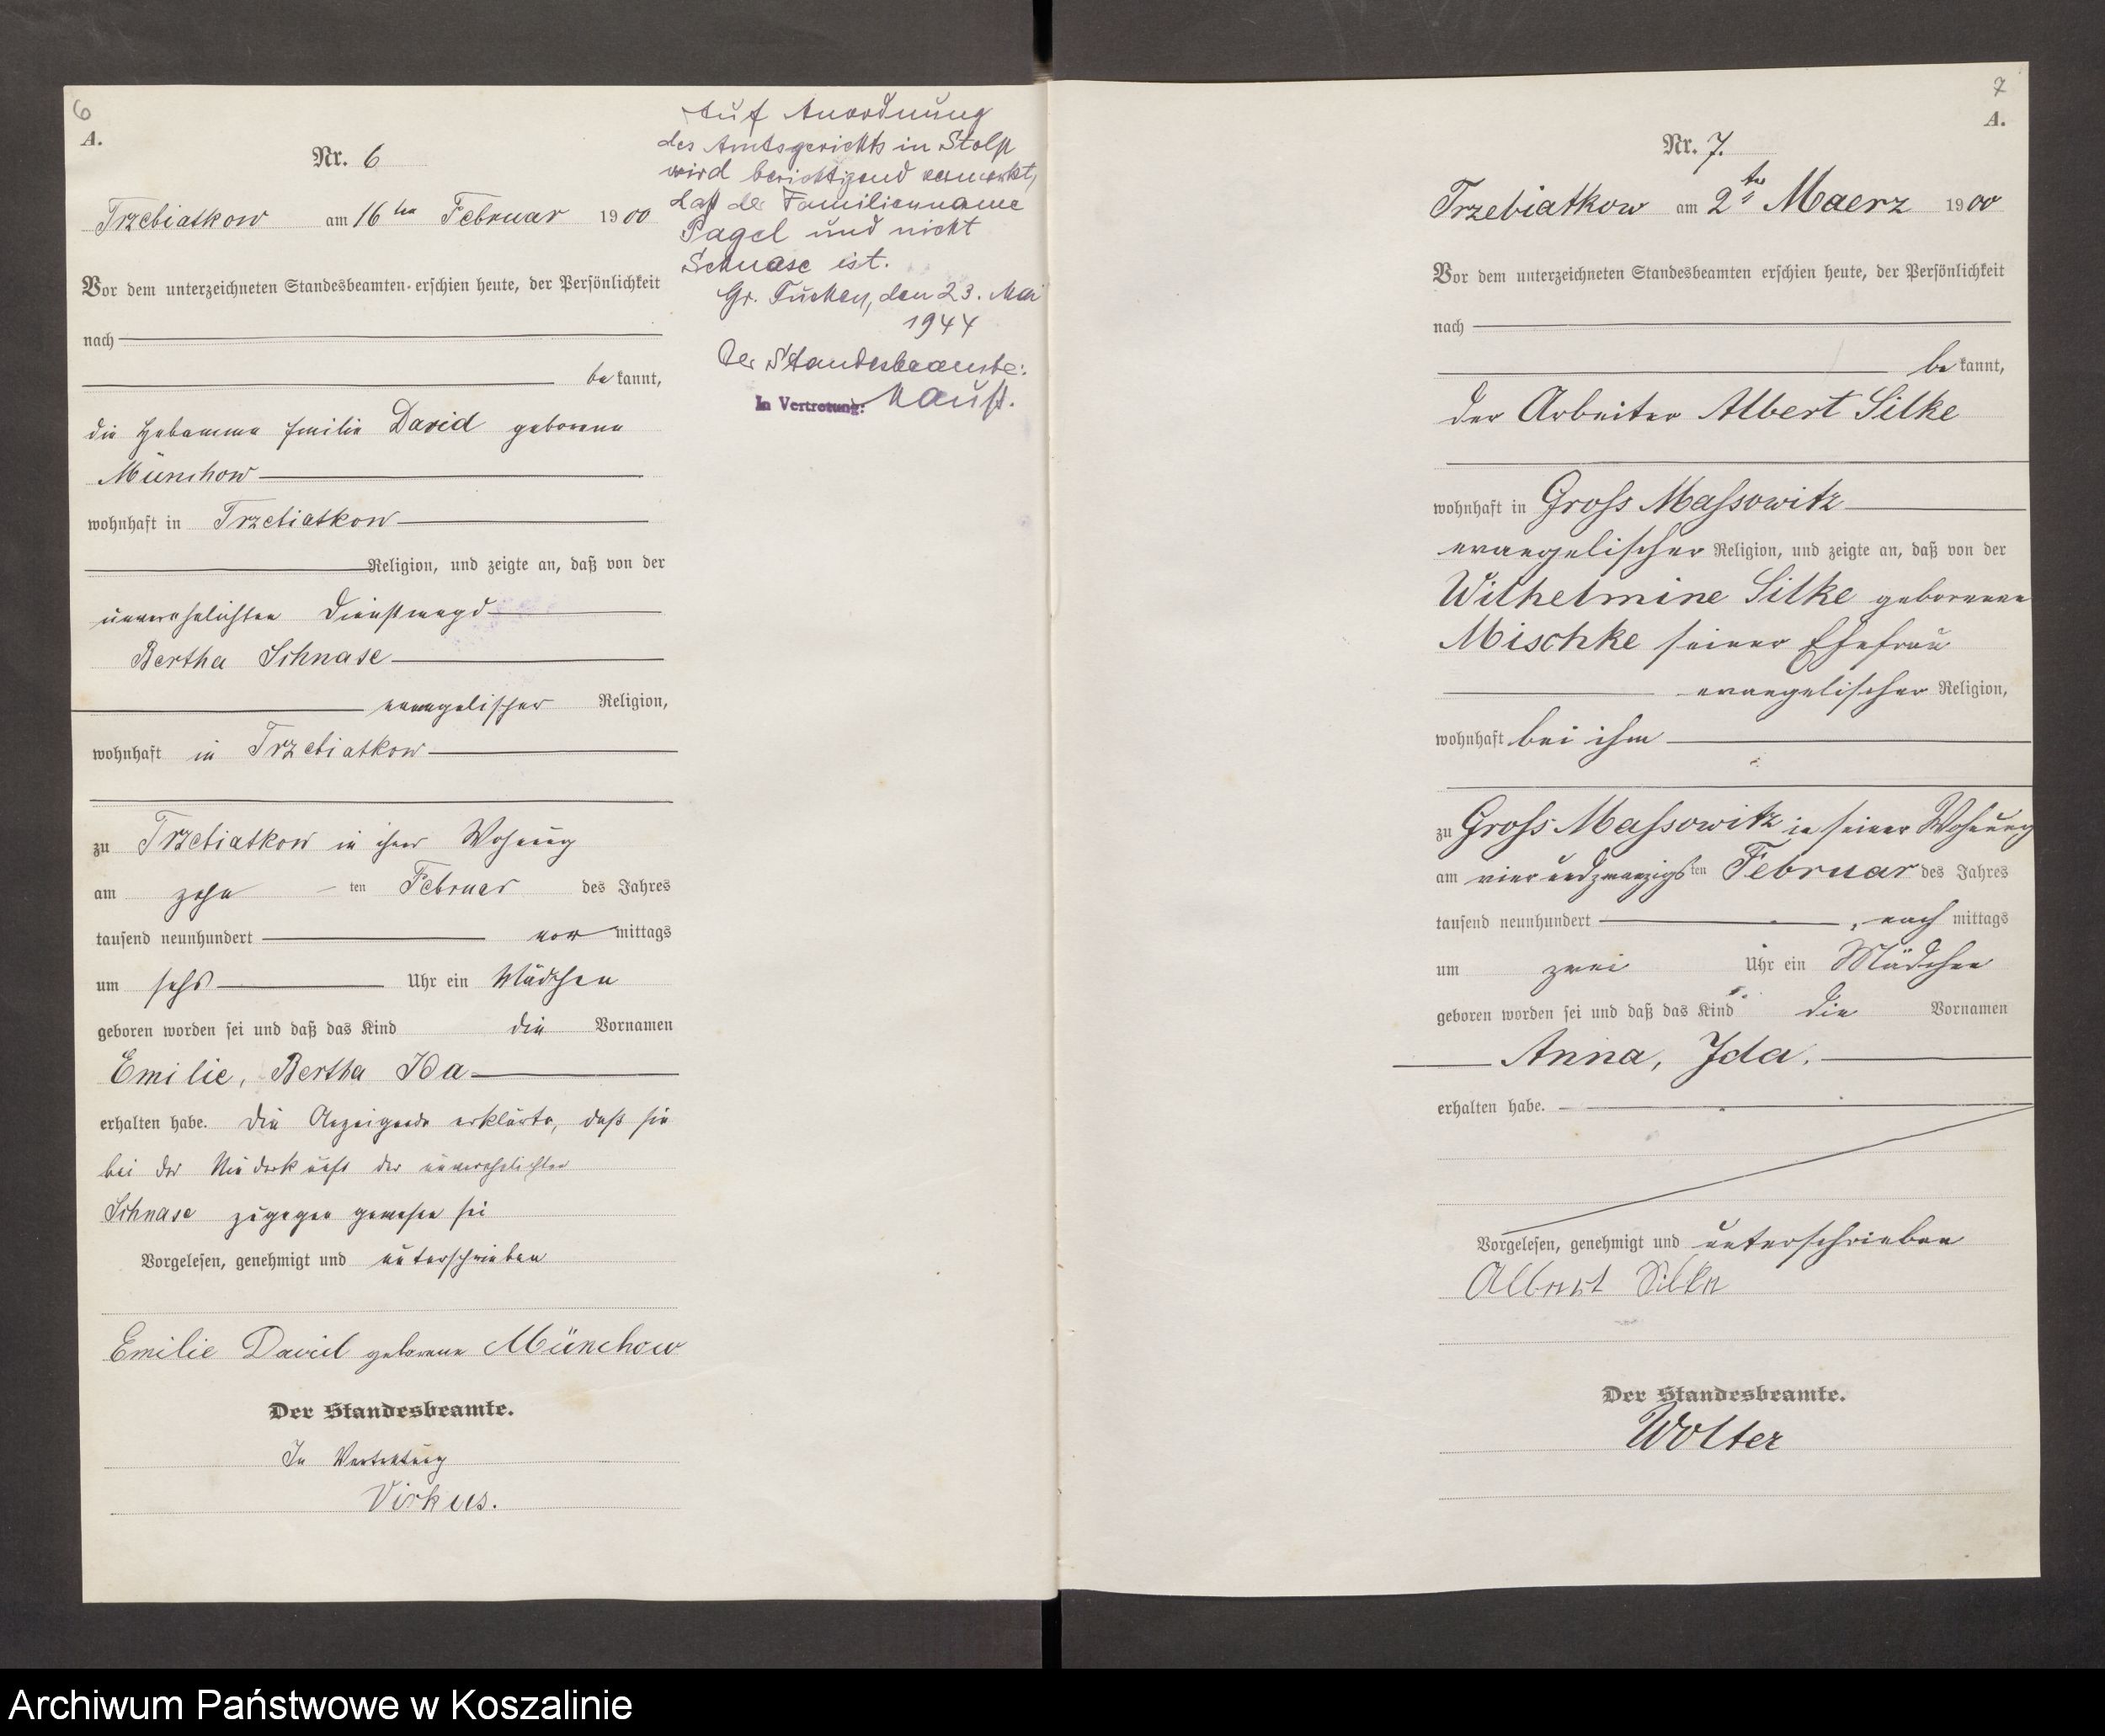 6
A.
Nr. 6
Trzebiatkow am 16ten Februar 1900
Vor dem unterzeichneten Standesbeamten erschien heute, der Persönlichkeit
nach
bekannt,
die Hebamme Emilie David geborene
Münchow
wohnhaft in Trzebiatkow
Religion, und zeigte an, daß von der
unverehelichten Dienstmagd
Bertha Schnase
evangelischer Religion,
wohnhaft in Trzebiatkow
zu Trzebiatkow in ihrer Wohnung
am zehnten Februar des Jahres
tausend neunhundert vormittags
um sechs Uhr ein Mädchen
geboren worden sei und daß das Kind die Vornamen
Emilie, Bertha Ida
erhalten habe. Die Anzeigende erklärte, daß sie
bei der Niederkunft der unverehelichten
Schnase zugegen gewesen sei
Vorgelesen, genehmigt und unterschrieben
Emilie David geborene Münchow
Der Standesbeamte.
In Vertretung
Virkus.
Auf Anordnung
des Amtsgerichts in Stolp
wird berichtigend vermerkt,
daß der Familienname
Pagel und nicht
Schnase ist.
Gr. Tuchen, den 23. Mai
1944
Der Standesbeamte:
In Vertretung:
7
A.
Nr. 7.
Trzebiatkow am 2ten Maerz 1900
Vor dem unterzeichneten Standesbeamten erschien heute, der Persönlichkeit
nach
bekannt,
der Arbeiter Albert Silke
wohnhaft in Gross Massowitz
evangelischer Religion, und zeigte an, daß von der
Wilhelmine Silke geborenen
Mischke seiner Ehefrau
evangelischer Religion,
wohnhaft bei ihm
zu Gross Massowitz in seiner Wohnung
am vierundzwanzigsten Februar des Jahres
tausend neunhundert, nachmittags
um zwei Uhr ein Mädchen
geboren worden sei und daß das Kind die Vornamen
Anna, Ida.
erhalten habe.
Vorgelesen, genehmigt und unterschrieben
Albert Silke
Der Standesbeamte.
Wolter
Archiwum Państwowe w Koszalinie